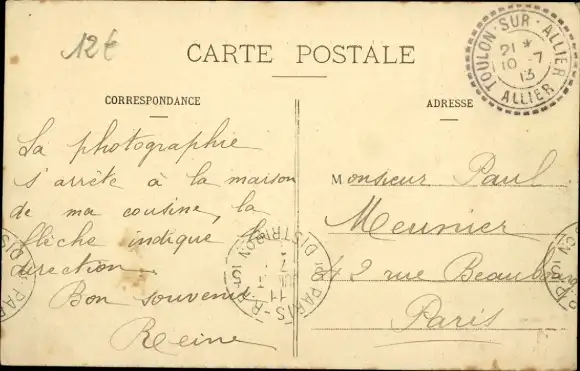 12€
CARTE POSTALE
TOULON-SUR-ALLIER
21 *
10 -7
13
ALLIER
CORRESPONDANCE
ADRESSE
La photographie
s'arrête à la maison
de ma cousine, la
flèche indique la
direction.
Bon souvenir
Reine
Monsieur Paul
Meunier
42 rue Beaubourg
Paris
PARIS
DISTRIBON
11
PARIS
DIST
PARIS